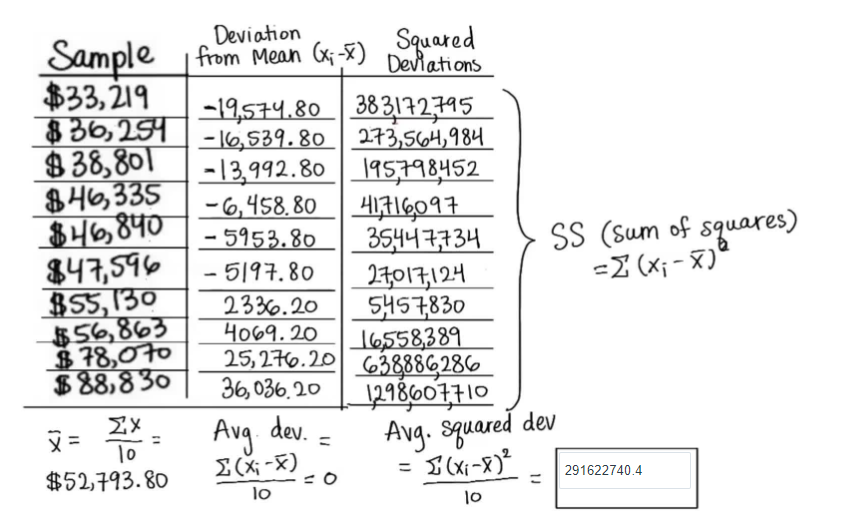 Sample Deviation from Mean (xᵢ-x̄) Squared Deviations
$33,219 -19,574.80 383,172,795
$36,254 -16,539.80 273,564,984
$38,801 -13,992.80 195,798,452
$46,335 -6,458.80 41,716,097
$46,840 -5953.80 35,447,734
$47,596 -5197.80 27,017,124
$55,130 2336.20 5,457,830
$56,863 4069.20 16,558,389
$78,070 25,276.20 638,886,286
$88,830 36,036.20 1,298,607,710
SS (sum of squares)
=Σ(xᵢ-x̄)²
x̄ = Σx/10 = $52,793.80
Avg. dev. = Σ(xᵢ-x̄)/10 = 0
Avg. squared dev = Σ(xᵢ-x̄)²/10 = 291622740.4